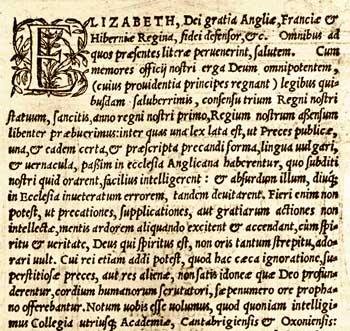 ELIZABETH, Dei gratia Angliæ, Franciæ &
Hiberniæ Regina, fidei defensor, &c. Omnibus ad
quos præsentes literæ peruenerint, salutem. Cum
memores officij nostri erga Deum omnipotentem,
(cuius prouidentia principes regnant) legibus qui-
busdam saluberrimis, consensu trium Regni nostri
statuum, sancitis, anno regni nostri primo, Regium nostrum assensum
libenter præbuerimus: inter quas una lex lata est, ut Preces publicæ,
una, & eadem certa, & præscripta precandi forma, lingua vulgari,
& vernacula, passim in ecclesia Anglicana haberentur, quo subditi
nostri quid orarent, facilius intelligerent: & absurdum illum, diuq́;
in Ecclesia inueteratum errorem, tandem deuitarent. Fieri enim non
potest, ut precationes, supplicationes, aut gratiarum actiones non
intellectæ, mentis ardorem aliquando excitent & accendant, cùm spi-
ritu & veritate, Deus qui spiritus est, non oris tantum strepitu, ado-
rari uult. Cui rei etiam addi potest, quod hac cæca ignoratione, su-
perstitiosæ preces, aut res alienæ, non satis idoneæ quæ Deo profun-
derentur, cordium humanorum scrutatori, sæpenumero ore propha-
no offerebantur. Notum uobis esse volumus, quod quoniam intelligi-
mus Collegia utriusq; Academiæ, Cantabrigiensis & Oxoniensis: